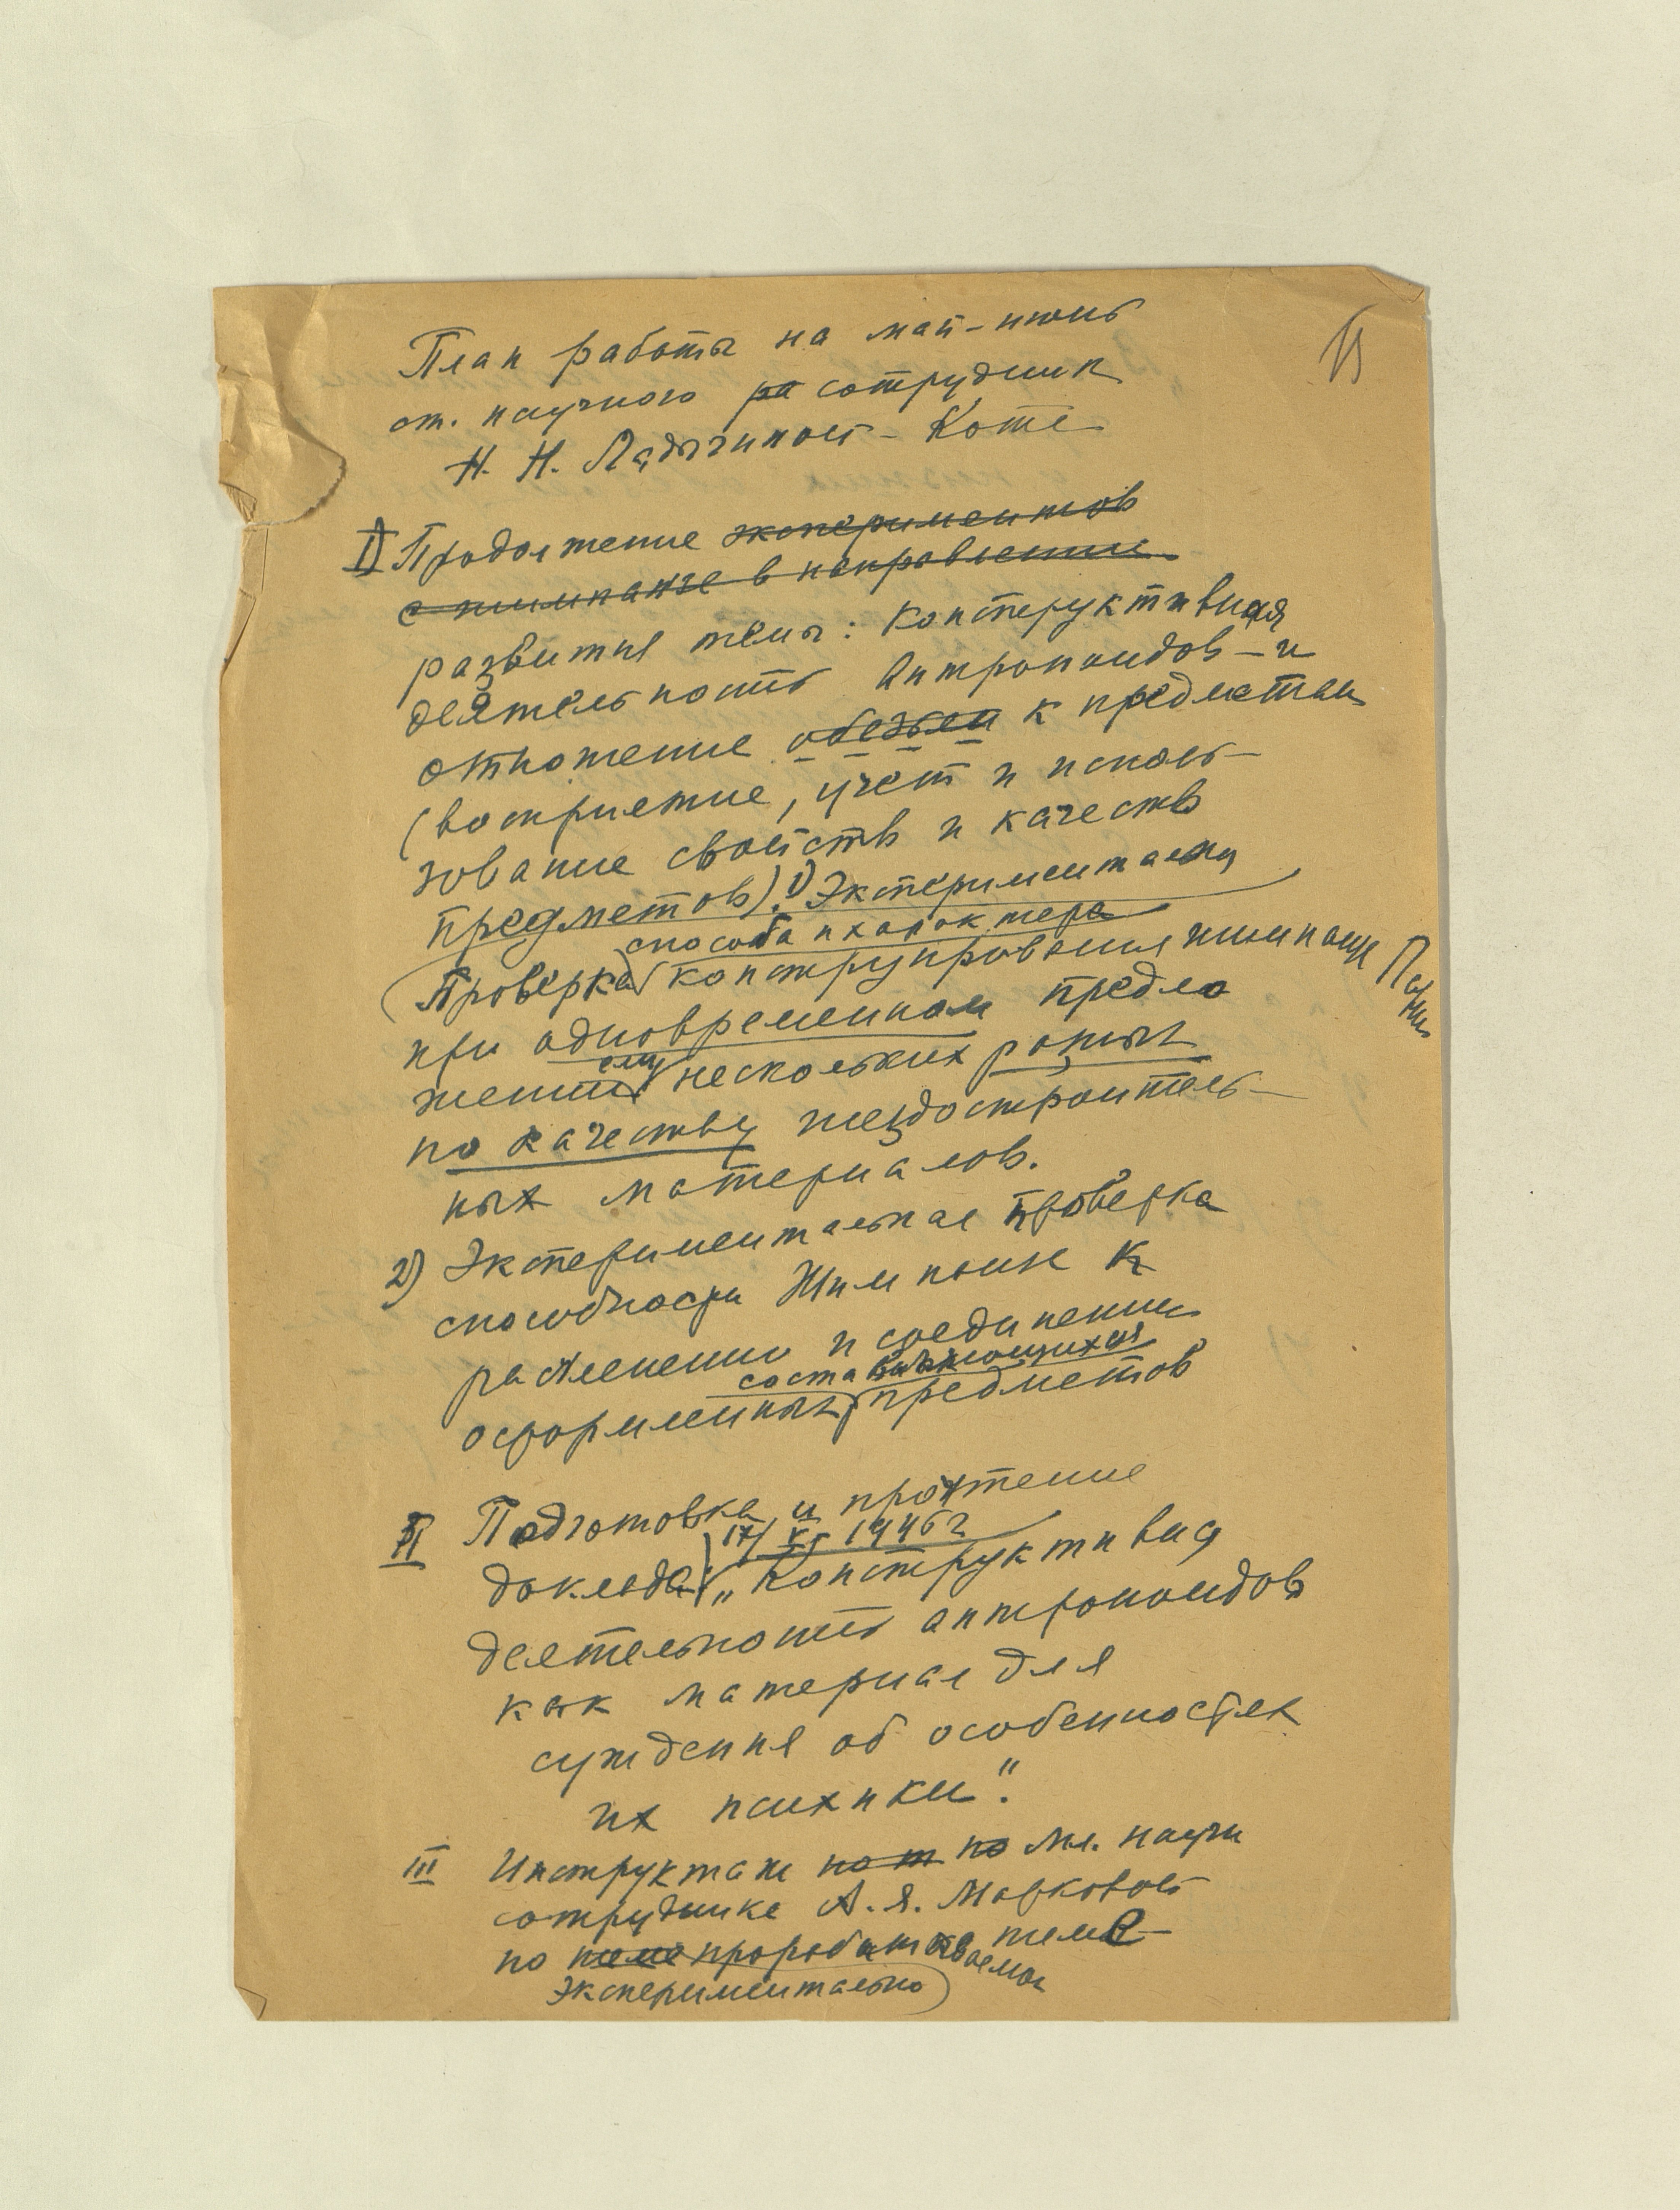 План работы на май-июнь
ст. научного ра сотрудник
Н. Н. Ладыгиной-Котс
I) Продолжение экспериментов
с шимпанзе в направлении
развития темы: Конструктивная
деятельность антропоидов – и
отношение обезьян к предметам
(восприятие, учет и исполь-
зование свойств и качеств
предметов). 1) Экспериментальная
способа и характера
Проверка конструирования шимпанзе
Парис
при одновременном предло
жении ему нескольких разных
по качеству гнездостроитель-
ных материалов.
2) Экспериментальная проверка
способности Шимпанзе к
расчленению и соединению
составляющихся
оформленных предметов
II Подготовка и прочтение
17/V 1946 г
доклада: „Конструктивная
деятельность антропоидов
как материал для
суждения об особенностях
их психики".
III Инструктаж по мл. научн
сотруднике А. Я. Марковой
по теме прорабатываемой теме
экспериментально